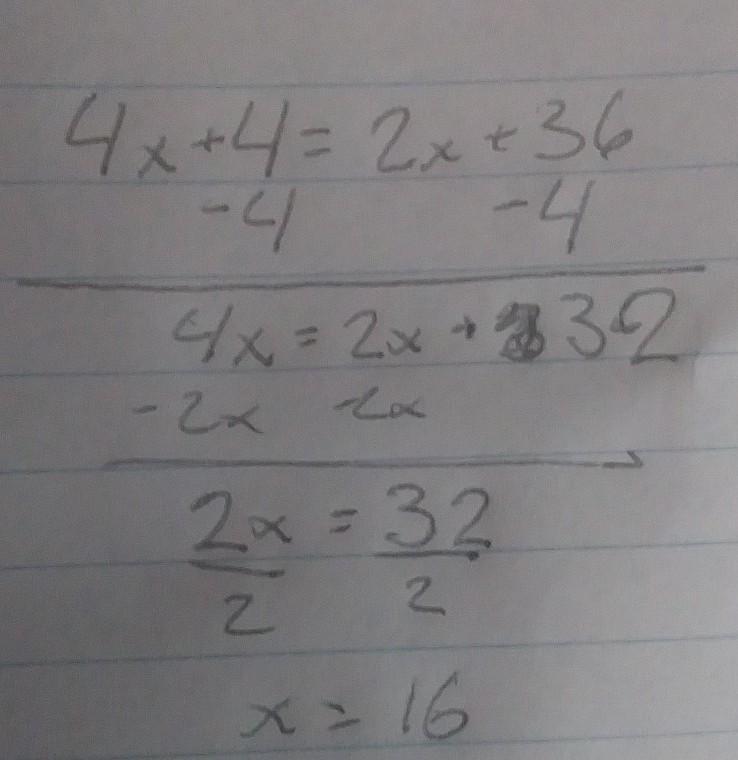 4x+4=2x+36
-4 -4
4x=2x+32
-2x -2x
2x=32
2 2
x=16